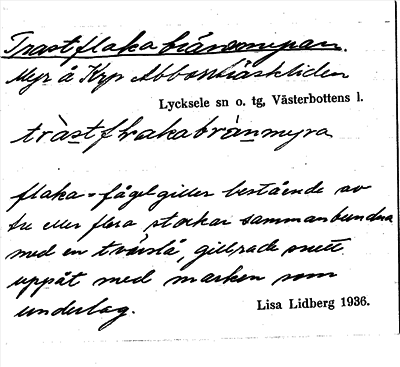 Trastflakabränmyran.
Myr å Krp Abborrträskliden
Lycksele sn o. tg, Västerbottens l.
tràstflakabrànmyra
flaka = fågelgiller bestående av
tre eller flera stockar sammanbundna
med en tvärslå, gillrade snett
uppåt med marken som
underlag.
Lisa Lidberg 1936.